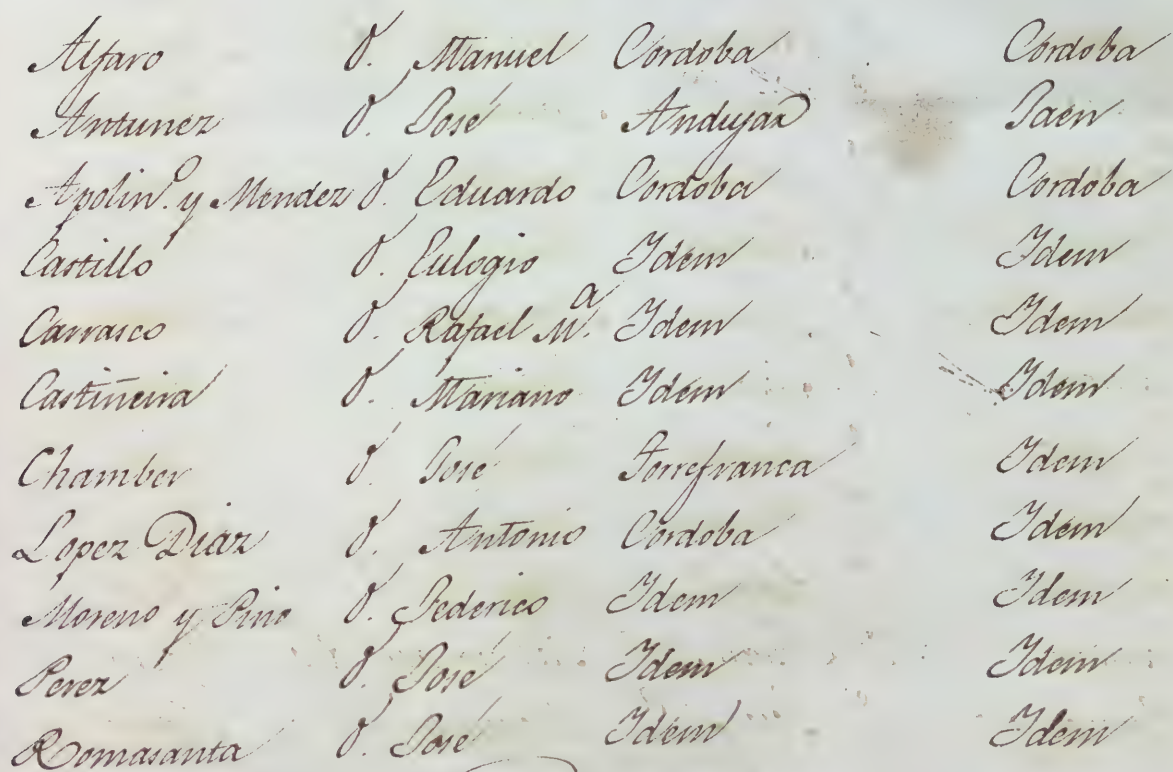 Alfaro D. Manuel Cordoba Cordoba
Antunez D. José Andujar Jaen
Apolin.º y Mendez D. Eduardo Cordoba Cordoba
Castillo D. Eulogio Idem Idem
Carrasco D. Rafael M.ª Idem Idem
Castiñeira D. Mariano Idem Idem
Chamber D. José Torrefranca Idem
Lopez Diaz D. Antonio Cordoba Idem
Moreno y Pino D. Federico Idem Idem
Perez D. José Idem Idem
Romasanta D. José Idem Idem